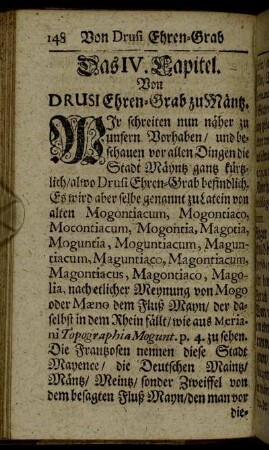 148 Von Drusi Ehren-Grab
Das IV. Capitel.
Von
DRUSI Ehren-Grab zu Mäntz.
WJr schreiten nun näher zu
unserm Vorhaben / und be-
schauen vor allen Dingen die
Stadt Mäyntz gantz kürtz-
lich / alwo Drusi Ehren-Grab befindlich.
Es wird aber selbe genannt zu Latein von
alten Mogontiacum, Mogontiaco,
Mocontiacum, Mogontia, Magotia,
Moguntia, Moguntiacum, Magun-
tiacum, Maguntiaco, Magontiacum,
Magontiacus, Magontiaco, Mago-
lia, nach etlicher Meynung von Mogo
oder Mæno dem Fluß Mayn / der da-
selbst in dem Rhein fällt / wie aus Meria-
ni Topographia Mogunt. p. 4. zu sehen.
Die Frantzosen nennen diese Stadt
Mayence / die Deutschen Maintz /
Mäntz / Meintz / sonder Zweiffel von
dem besagten Fluß Mayn / den man vor
die-